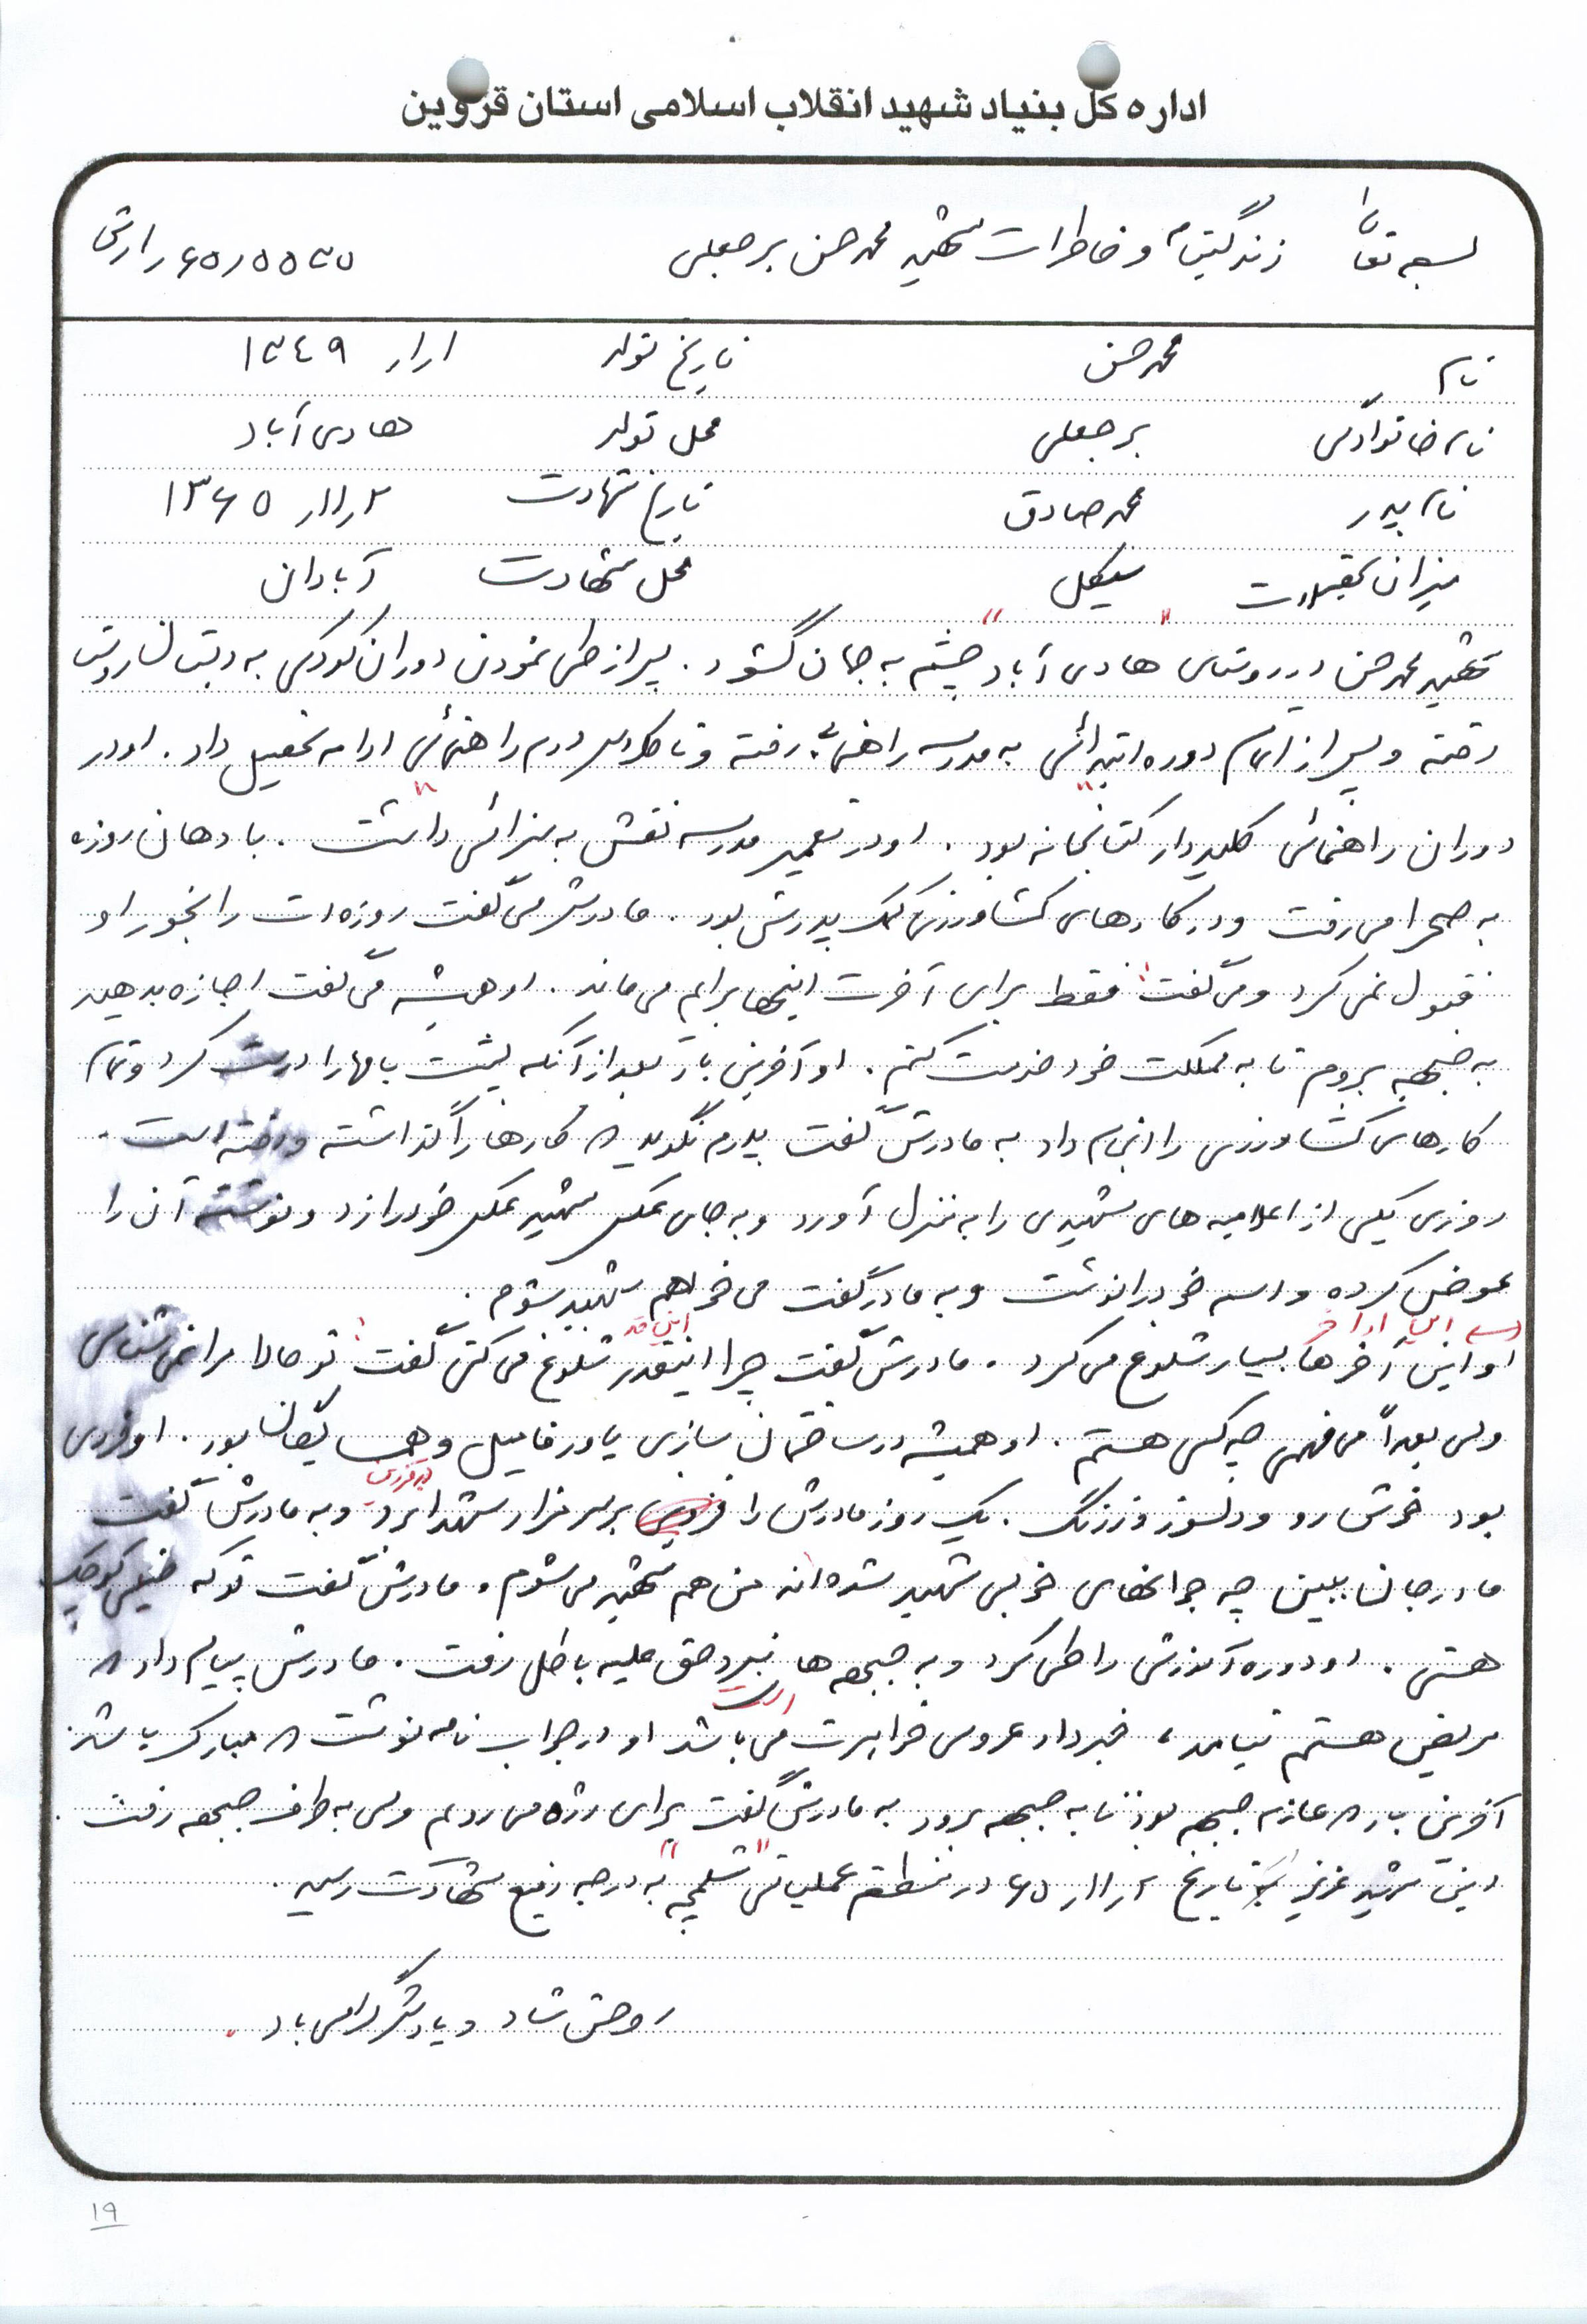 اداره کل بنیاد شهید انقلاب اسلامی استان قزوین
بسمه تعالی زندگینامه و خاطرات شهید محمدحسن برجعلی ۶۵٫۵۵۳۵
نام محمدحسن تاریخ تولد ۱٫۱٫ ۱۳۴۹
نام خانوادگی برجعلی محل تولد هادی آباد
نام پدر محمدصادق تاریخ شهادت ۲٫۱۱٫ ۱۳۶۵
میزان تحصیلات سیکل محل شهادت آبادان
شهید محمدحسن در روستای "هادی آباد" چشم به جهان گشود. پس از طی نمودن دوران کودکی به دبستان روستا
رفته و پس از اتمام دوره ابتدائی به مدرسه راهنمائی رفته و تا کلاس دوم راهنمائی ادامه تحصیل داد. او در
دوران راهنمائی "کلیددار کتابخانه" بود. او در تعمیر مدرسه نقش به سزائی داشت. با دهان روزه
به صحرا می رفت و در کارهای کشاورزی کمک پدرش بود. مادرش می گفت روزه ات را بخور او
قبول نمی کرد و می گفت: فقط برای آخرت اینها برایم می ماند. او همیشه می گفت اجازه بدهید
به جبهه بروم تا به مملکت خود خدمت کنم. او آخرین بار بعد از آنکه پشت بامها را درست کرد و تمام
کارهای کشاورزی را انجام داد به مادرش گفت پدرم نگوید که کارها را گذاشته و رفته است.
روزی یکی از اعلامیه های شهیدی را به منزل آورد و به جای عکس شهید عکس خود را زد و نوشته آن را
عوض کرده و اسم خود را نوشت و به مادر گفت می خواهم شهید شوم.
او این آخرها بسیار شلوغ می کرد. مادرش گفت چرا اینقدر این قدر شلوغ می کنی گفت: تو حالا مرا نمی شناسی
ولی بعداً می فهمی چه کسی هستم. او همیشه در ساختمان سازی یاور فامیل و همسایگان بود. او فردی
بود خوش رو و دلسوز و زرنگ. یک روز مادرش را بر سر مزار شهدا برد و به مادرش گفت
مادر جان ببین چه جوانهای خوبی شهید شده اند من هم شهید می شوم. مادرش گفت تو که خیلی کوچک
هستی. او دوره آموزش را طی کرد و به جبهه ها نبرد حق علیه باطل رفت. مادرش پیام داد که
مریض هستم نیامد، خبر داد عروسی خواهرت می باشد است او در جواب نامه نوشت که مبارک باشد.
آخرین بار که عازم جبهه بود تا به جبهه برود به مادرش گفت برای رژه می رویم ولی به طرف جبهه رفت.
این شهید عزیز در تاریخ ۲٫۱۱٫۶۵ در منطقه عملیاتی "شلمچه" به درجه رفیع شهادت رسید.
روحش شاد و یادش گرامی باد.
۱۹